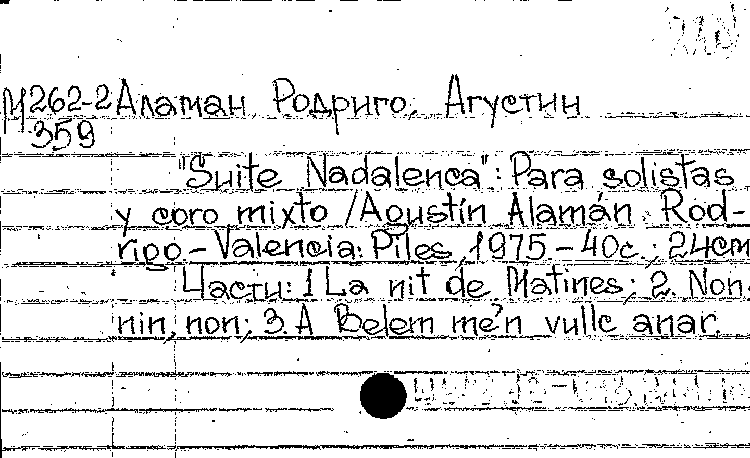 М262-2 Аламан Родриго, Агустин
359
"Suite Nadalenca": Para solistas
y coro mixto / Agustín Alamán Rod-
rigo – Valencia: Piles, 1975 – 40с.; 24cm
Части: 1 La nit de Matines; 2. Non.
nin, non; 3. A Belem me'n vullc anar.